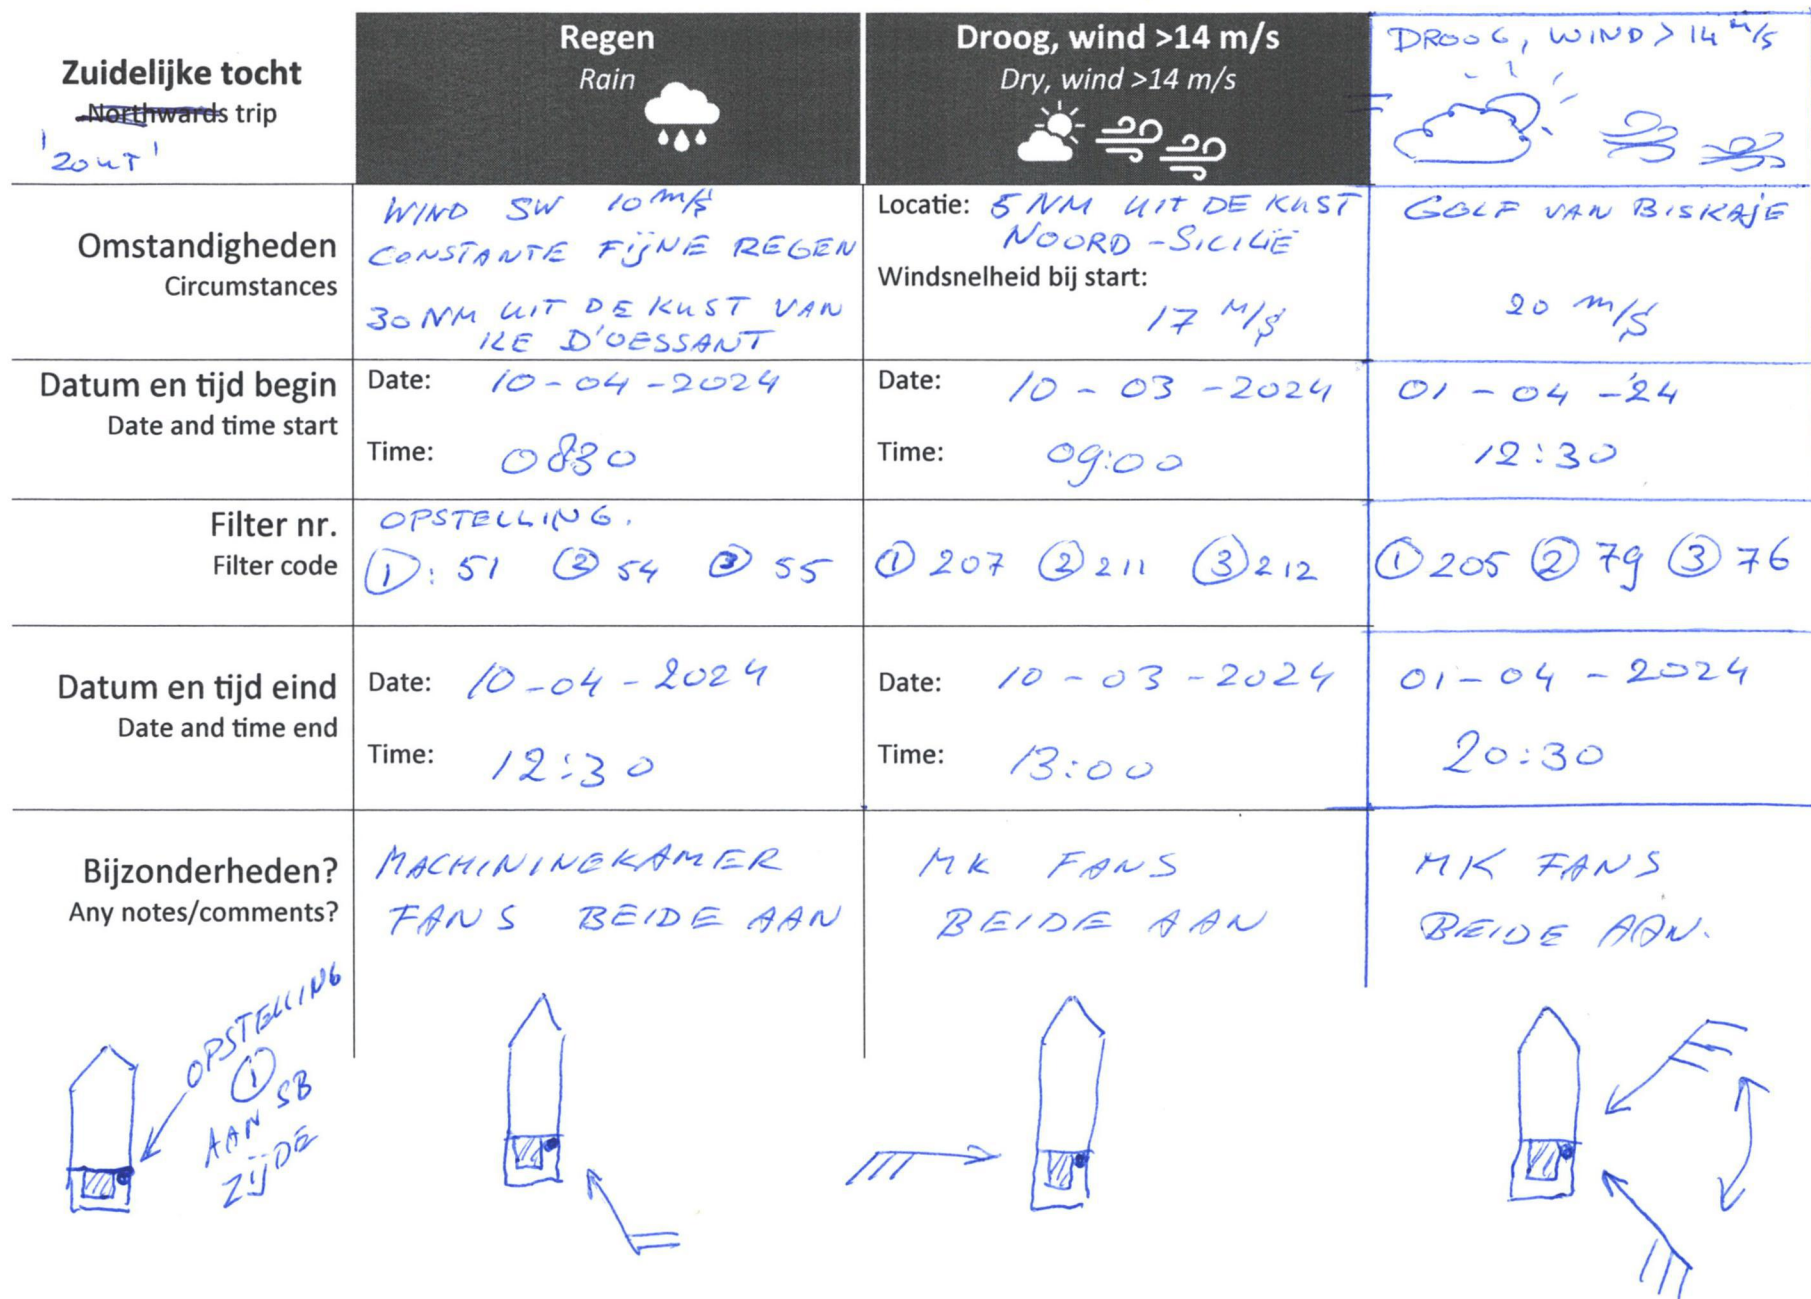 Zuidelijke tocht
Northwards trip
'ZOUT'
Regen
Rain
Droog, wind >14 m/s
Dry, wind >14 m/s
DROOG, WIND > 14 m/s
Omstandigheden
Circumstances
WIND SW 10 m/s
CONSTANTE FIJNE REGEN
30 NM UIT DE KUST VAN
ILE D'OESSANT
Locatie: 5 NM UIT DE KUST
NOORD - SICILIË
Windsnelheid bij start:
17 M/S
GOLF VAN BISKAJE
20 m/s
Datum en tijd begin
Date and time start
Date: 10-04-2024
Time: 0830
Date: 10-03-2024
Time: 09:00
01-04-'24
12:30
Filter nr.
Filter code
OPSTELLING.
①: 51 ② 54 ③ 55
① 207 ② 211 ③ 212
① 205 ② 79 ③ 76
Datum en tijd eind
Date and time end
Date: 10-04-2024
Time: 12:30
Date: 10-03-2024
Time: 13:00
01-04-2024
20:30
Bijzonderheden?
Any notes/comments?
MACHININEKAMER
FANS BEIDE AAN
MK FANS
BEIDE AAN
MK FANS
BEIDE AAN.
OPSTELLING
①
AAN SB
ZIJDE